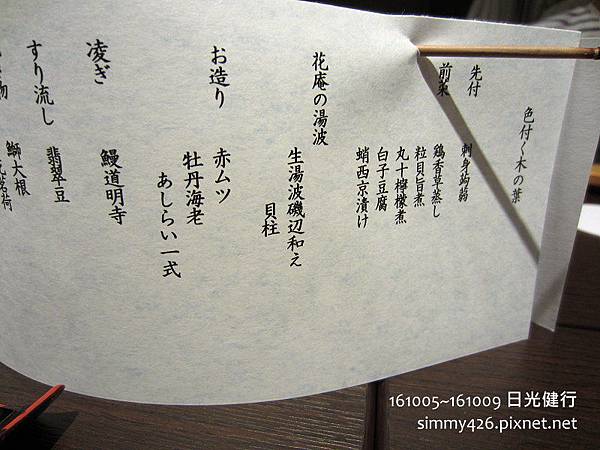 色付く木の葉
先付
刺身蒟蒻
前菜
鶏香草蒸し
粒貝旨煮
丸十檸檬煮
白子豆腐
蛸西京漬け
花庵の湯波
生湯波磯辺和え
貝柱
お造り
赤ムツ
牡丹海老
あしらい一式
凌ぎ
鰻道明寺
すり流し
翡翠豆
物
鰤大根
茗荷
161005~161009 日光健行
simmy426.pixnet.net